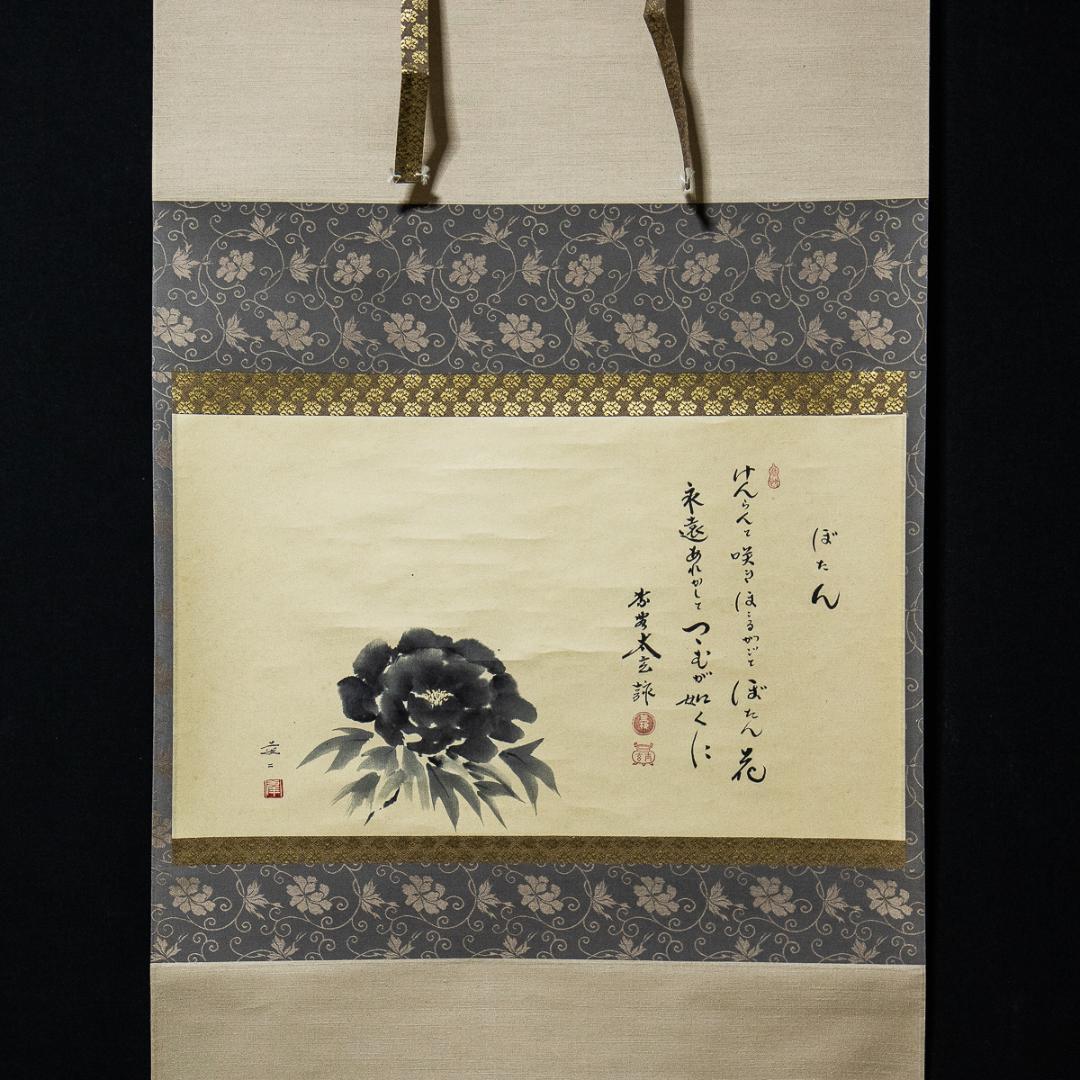 ぼたん
けんらんと咲きほこるがごとぼたん花
永遠あれかしとつゝむが如くに
太玄詠